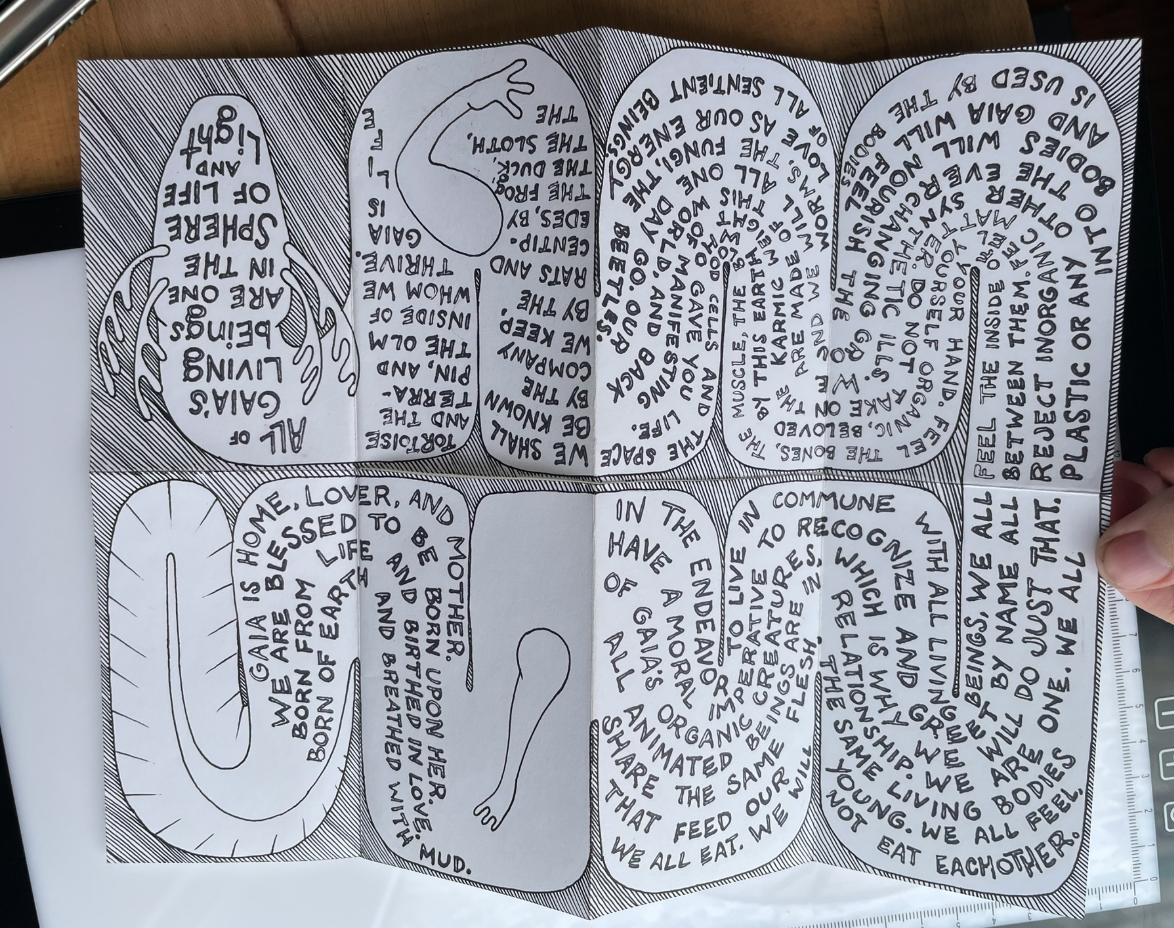 ALL OF
GAIA'S
LIVING
beings
ARE ONE
IN THE
SPHERE
OF LIFE
AND
Light
GAIA IS HOME, LOVER, AND MOTHER.
WE ARE BLESSED TO BE BORN UPON HER.
BORN FROM LIFE AND BIRTHED IN LOVE.
BORN OF EARTH AND BREATHED WITH MUD.
IN THE ENDEAVOR TO LIVE IN COMMUNE WITH ALL LIVING BEINGS, WE ALL
HAVE A MORAL IMPERATIVE TO RECOGNIZE AND GREET BY NAME ALL
OF GAIA'S ORGANIC CREATURES, WHICH IS WHY WE WILL DO JUST THAT.
ALL ANIMATED BEINGS ARE IN RELATIONSHIP. WE ARE ONE. WE ALL
SHARE THE SAME FLESH, THE SAME LIVING BODIES
THAT FEED OUR YOUNG. WE ALL FEEL,
WE ALL EAT. WE WILL NOT EAT EACHOTHER.
FEEL THE INSIDE OF YOUR HAND. FEEL THE BONES, THE MUSCLE, THE BLOOD CELLS AND THE SPACE
BETWEEN THEM. FEEL YOURSELF ORGANIC, BELOVED BY THIS EARTH WHO GAVE YOU LIFE.
REJECT INORGANIC MATTER. DO NOT TAKE ON THE KARMIC WEIGHT OF MANIFESTING
PLASTIC OR ANY OTHER SYNTHETIC ILLS. WE ARE MADE OF THIS WORLD, AND
INTO THE EVERCHANGING GROUND WE WILL ALL ONE DAY GO BACK
INTO BODIES AND GAIA WILL NOURISH THE WORMS, THE FUNGI, THE BEETLES.
IS USED BY THE BODIES FEEL LOVE AS OUR ENERGY
OF ALL SENTIENT BEINGS,
WE SHALL
BE KNOWN
BY THE
COMPANY
WE KEEP,
BY THE
RATS AND
CENTIP-
EDES, BY
THE FROG
THE DUCK,
THE SLOTH,
THE
TORTOISE
AND THE
TERRA-
PIN, AND
THE OLM
INSIDE OF
WHOM WE
THRIVE.
GAIA
IS
L
I
F
E